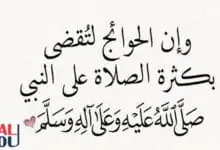 وإن الحوائج لتُقضى
بكثرة الصلاة على النبي
صَلَّى اللَّهُ عَلَيْهِ وَعَلَى آلِهِ وَسَلَّمَ